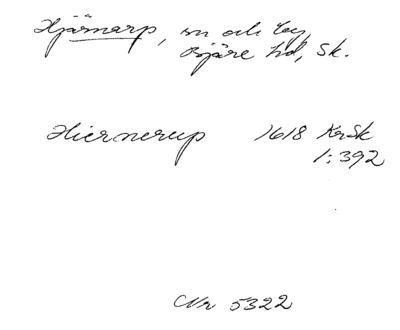 Hjärnarp, sn och by,
Bjäre hd, Sk.
Hiernerup 1618 KrSk
1:392
Nr 5322